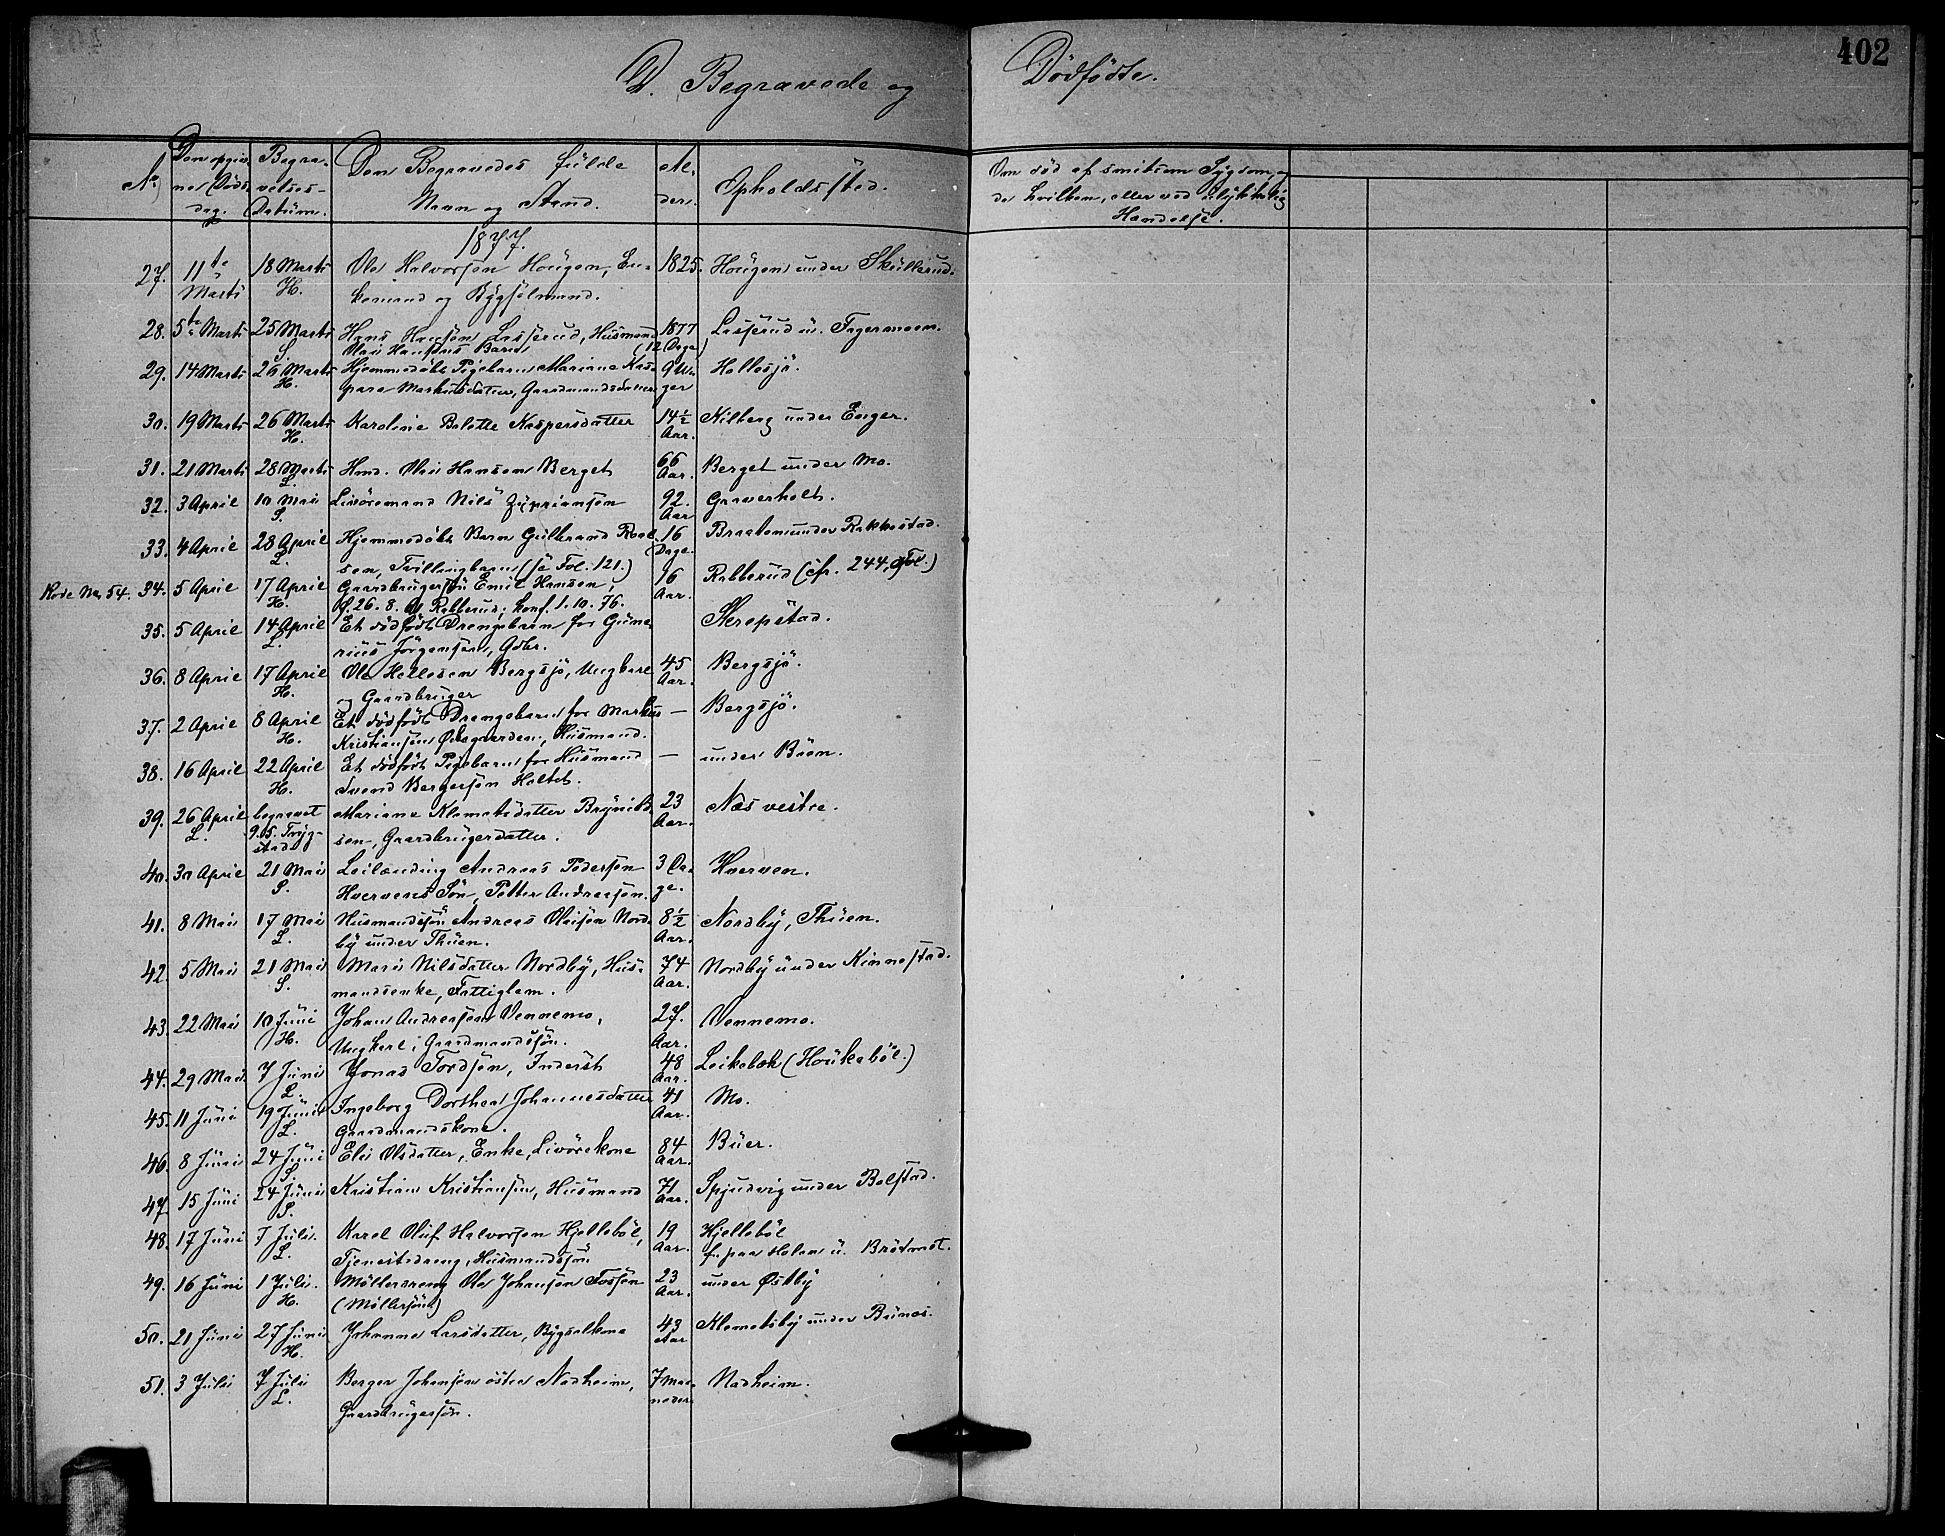 402
D. Begravede og Dødfødte.
No
Den opgivne Døds dag.
Begravelses-Datum.
Den Begravedes fulde Navn og Stand.
Alder.
Opholdsted.
Om død af smitsom Sygdom, og da hvilken, eller ved ulykkelig Hændelse.
1877.
27. 11te Marts 18 Marts H. Ole Halvorsen Hougen, En- 1825. Hougen under Skullerud.
kemand og Bygselmand.
28. 5te Marts 25 Marts S. Hans Hansen Lasserud, Husmand 1877 Lasserud u. Fagermoen.
Olaus Hansens Barn (12 Dage)
29. 14 Marts 26 Marts H. Hjemmedøbt Pigebarn Mariane Kas- 9 U- Hellesjø.
para Markusdatter, Gaardmandsdatter ger
30. 19 Marts 26 Marts H. Karoline Bolette Kaspersdatter 14½ Aar. Kilberg under Enger.
31. 21 Marts 28 Marts L. Hmd. Ole Hansen Berget 66 Aar. Berget under Mo.
32. 3 April 10 Mai S. Livøremand Nils Zypriansen 92. Aar Graverholt.
33. 4 April 28 April L. Hjemmedøbt Barn Gulbrand Roel- 16 Dage. Braaten under Rakkestad.
sen, Tvillingbarn (se Fol. 121.)
Kode No 54. 34. 5 April 17 April H. Gaardbrugersøn Emil Hansen, 16 Aar. Rabberud (cfr. 244, Fol.)
f. 26. 8. 61 Rabberud; konf. 1. 10. 76.
35. 5 April 14 April L. Et dødfødt Drengebarn for Gune- Skrepstad.
rius Jørgensen, Gdbr.
36. 8 April 17 April H. Ole Hellesen Bergsjø, Ungkarl 45 Aar. Bergsjø.
og Gaardbruger
37. 2 April 8 April H. Et dødfødt Drengebarn for Markus — Bergsjø.
Kristiansen Ødegaarden, Husmand.
38. 16 April 22 April H. Et dødfødt Pigebarn for Husmand — under Bøen.
Svend Bergersen Holtet.
39. 26 April L. begravet 9.5. Trygstad Mariane Klemetsdatter Brynild- 23 Aar. Næs vestre.
sen, Gaardbrugerdatter.
40. 30 April 21 Mai S. Leilænding Andreas Pedersen 3 Da- Hverven.
Hvervens Søn, Petter Andreasen. ge.
41. 8 Mai 17 Mai L. Husmandssøn Andreas Olaisen Nord- 8½ Aar. Nordby, Thuen.
by under Thuen.
42. 5 Mai 21 Mai S. Mari Nilsdatter Nordby, Hus- 74 Aar. Nordby under Kinnestad.
mandsenke, Fattiglem.
43. 22 Mai 10 Juni H. Johan Andreasen Vennemo, 27. Aar. Vennemo.
Ungkarl; Gaardmandssøn.
44. 29 Mai 7 Juni L. Jonas Tordsen, Inderst 48 Aar. Leikebæk (Houkebøl.)
45. 11 Juni 19 Juni L. Ingeborg Dorthea Johannesdatter 41 Aar. Mo.
Gaardmandskone.
46. 8 Juni 24 Juni S. Eli Olsdatter, Enke, Livørekone 84 Aar. Buer.
47. 15 Juni 24 Juni S. Kristian Kristiansen, Husmand 71 Aar. Spjudvig under Bolstad.
48. 17 Juni 7 Juli. L. Karel Oluf Halvorsen Hjellebøl, 19 Aar. Hjellebøl
Tjenestedreng, Husmandssøn f. paa Holen u. Brødmot.
49. 16 Juni 1 Juli. H. Møllersvend Ole Johansen Fossen 23 Aar. under Østby
(Møllersøn)
50. 21 Juni 27 Juni H. Johanne Larsdatter, Bygselkone 43 Aar Klemetsby under Bunæs.
51. 3 Juli 7 Juli L. Berger Johansen østre Nadheim, 7 Maa- Nadheim.
Gaardbrugersøn. neder.